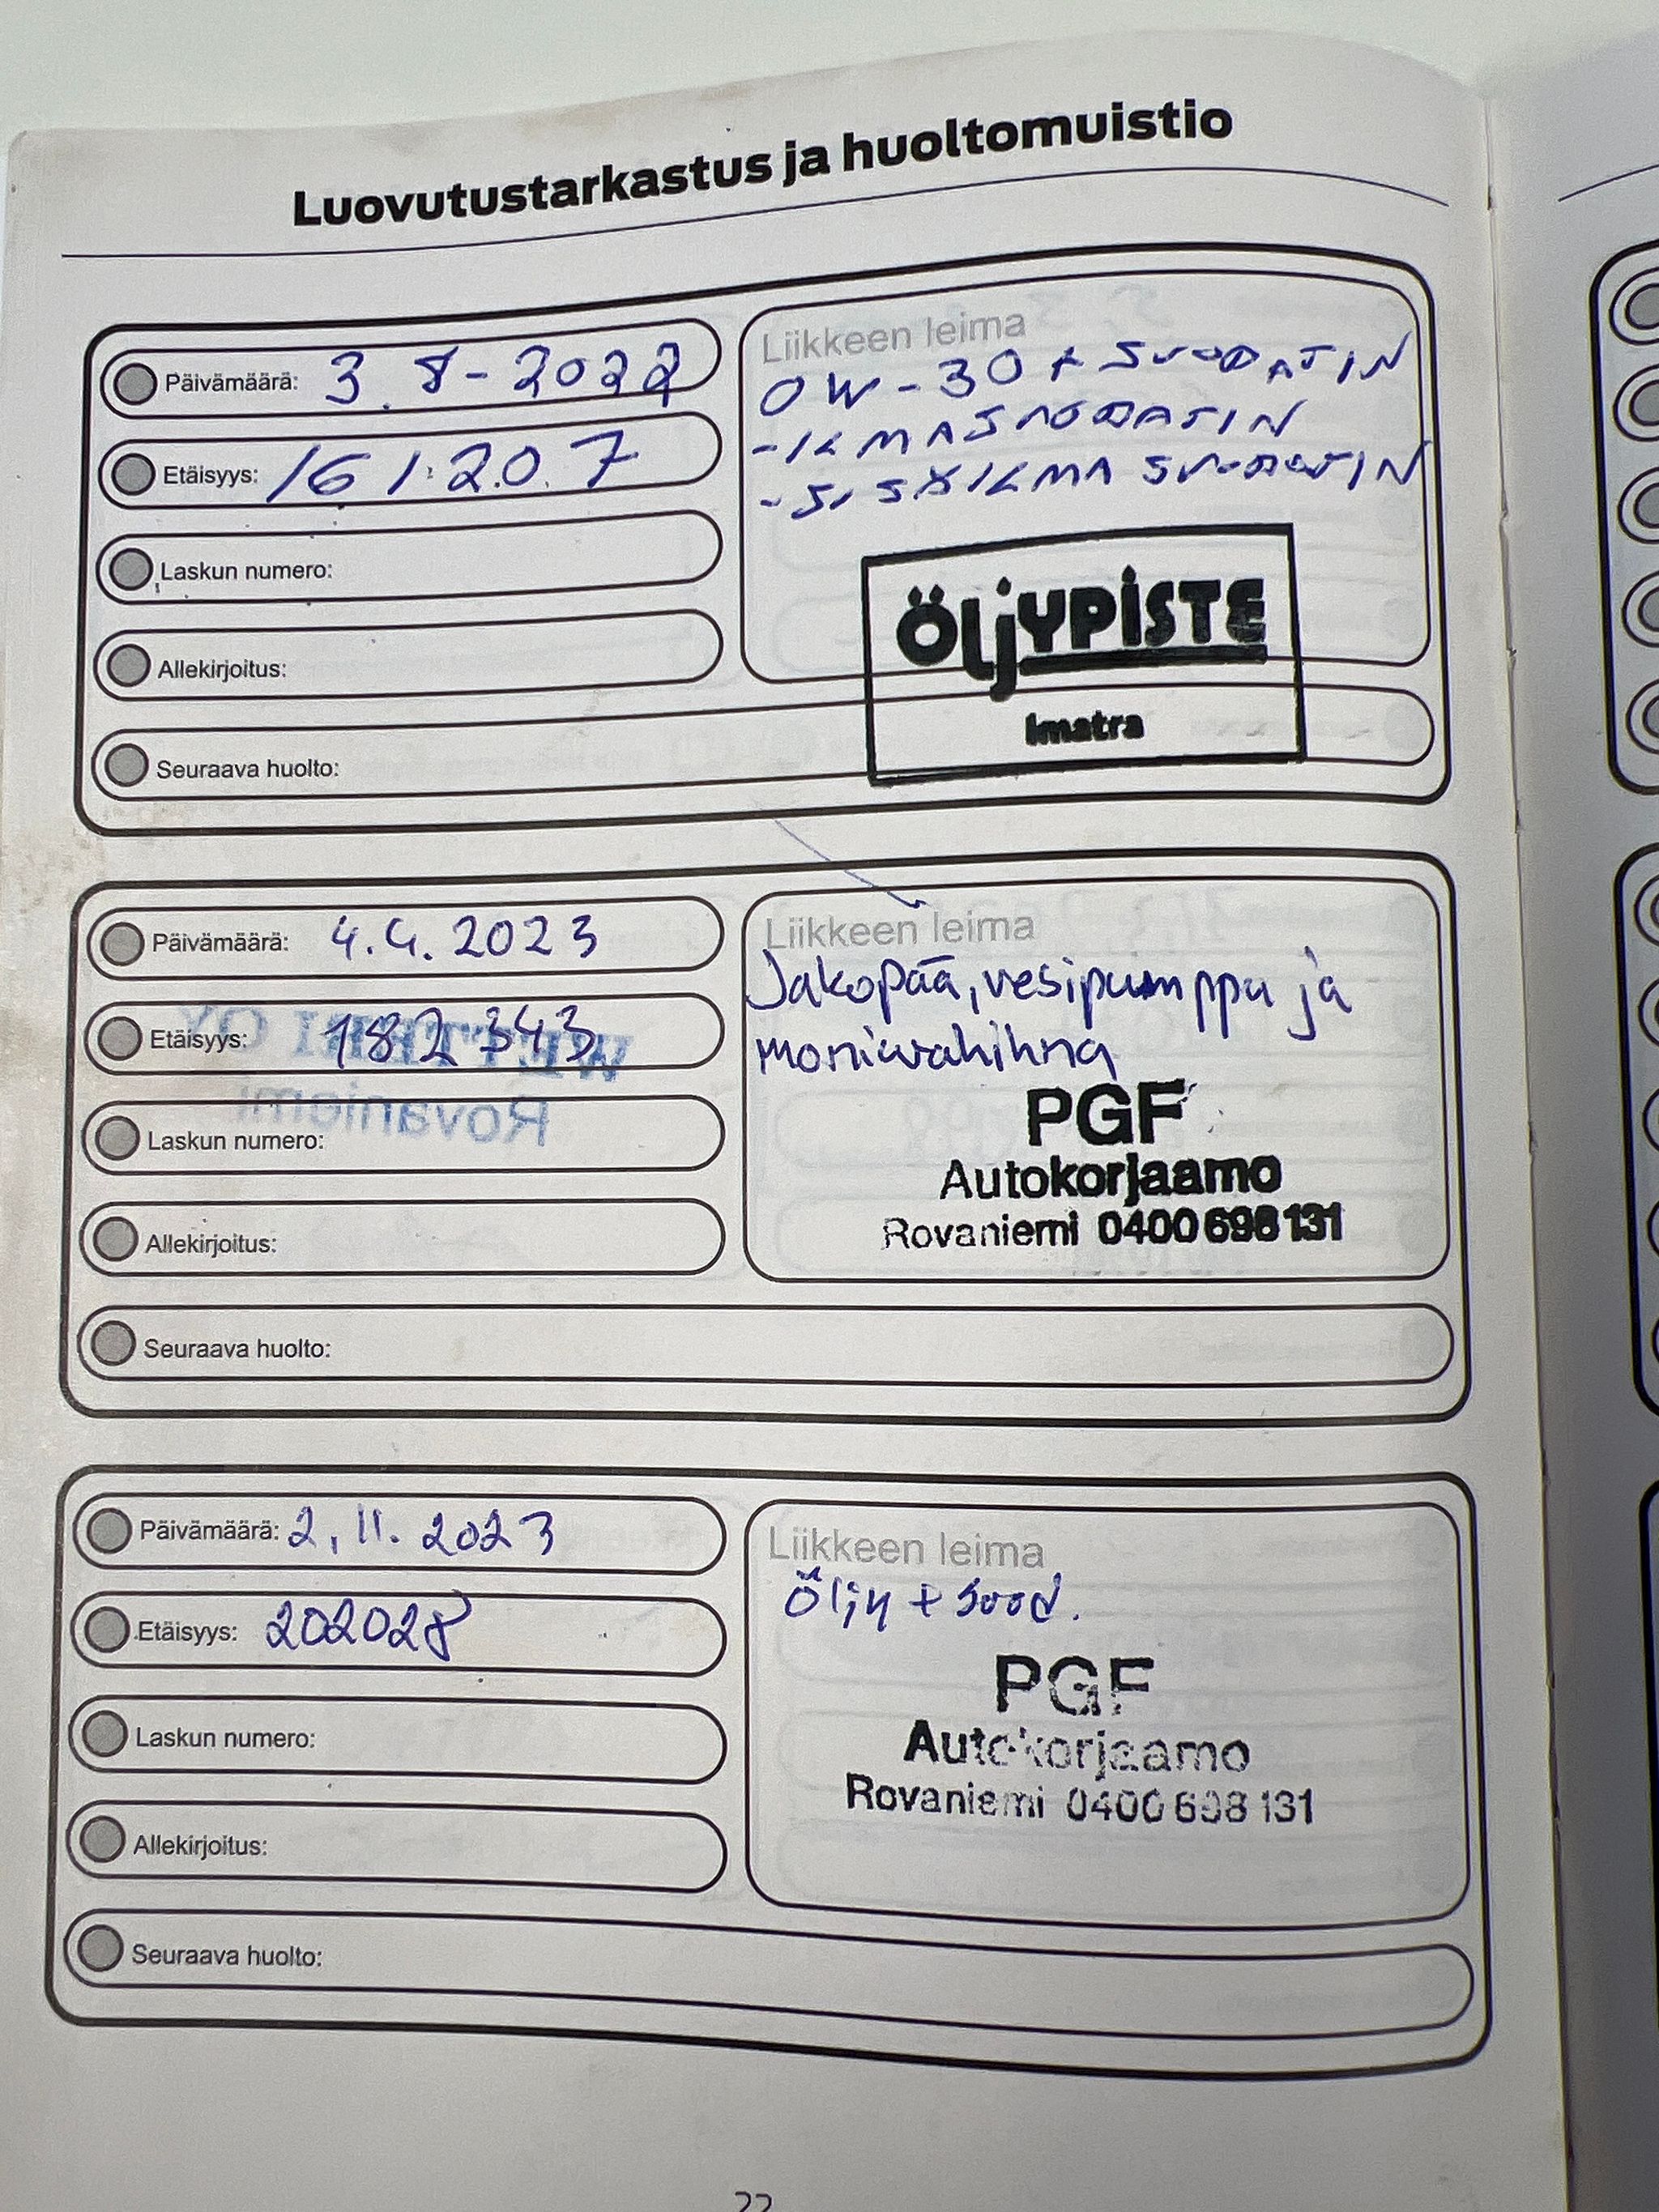 Luovutustarkastus ja huoltomuistio
Päivämäärä: 3.8-2022
Etäisyys: 161.20.7
Laskun numero:
Allekirjoitus:
Seuraava huolto:
Liikkeen leima
0W-30 + SUODATIN
-ILMASUODATIN
-SISÄILMA SUODATIN
ÖLJYPISTE
Imatra
Päivämäärä: 4.4.2023
Etäisyys: 182 343
Laskun numero:
Allekirjoitus:
Seuraava huolto:
Liikkeen leima
Jakopää, vesipumppu ja
moniurahihna
PGF
Autokorjaamo
Rovaniemi 0400 698 131
WETTERI OY
Rovaniemi
Päivämäärä: 2.11.2023
Etäisyys: 202028
Laskun numero:
Allekirjoitus:
Seuraava huolto:
Liikkeen leima
Öljy + suod.
PGF
Autokorjaamo
Rovaniemi 0400 698 131